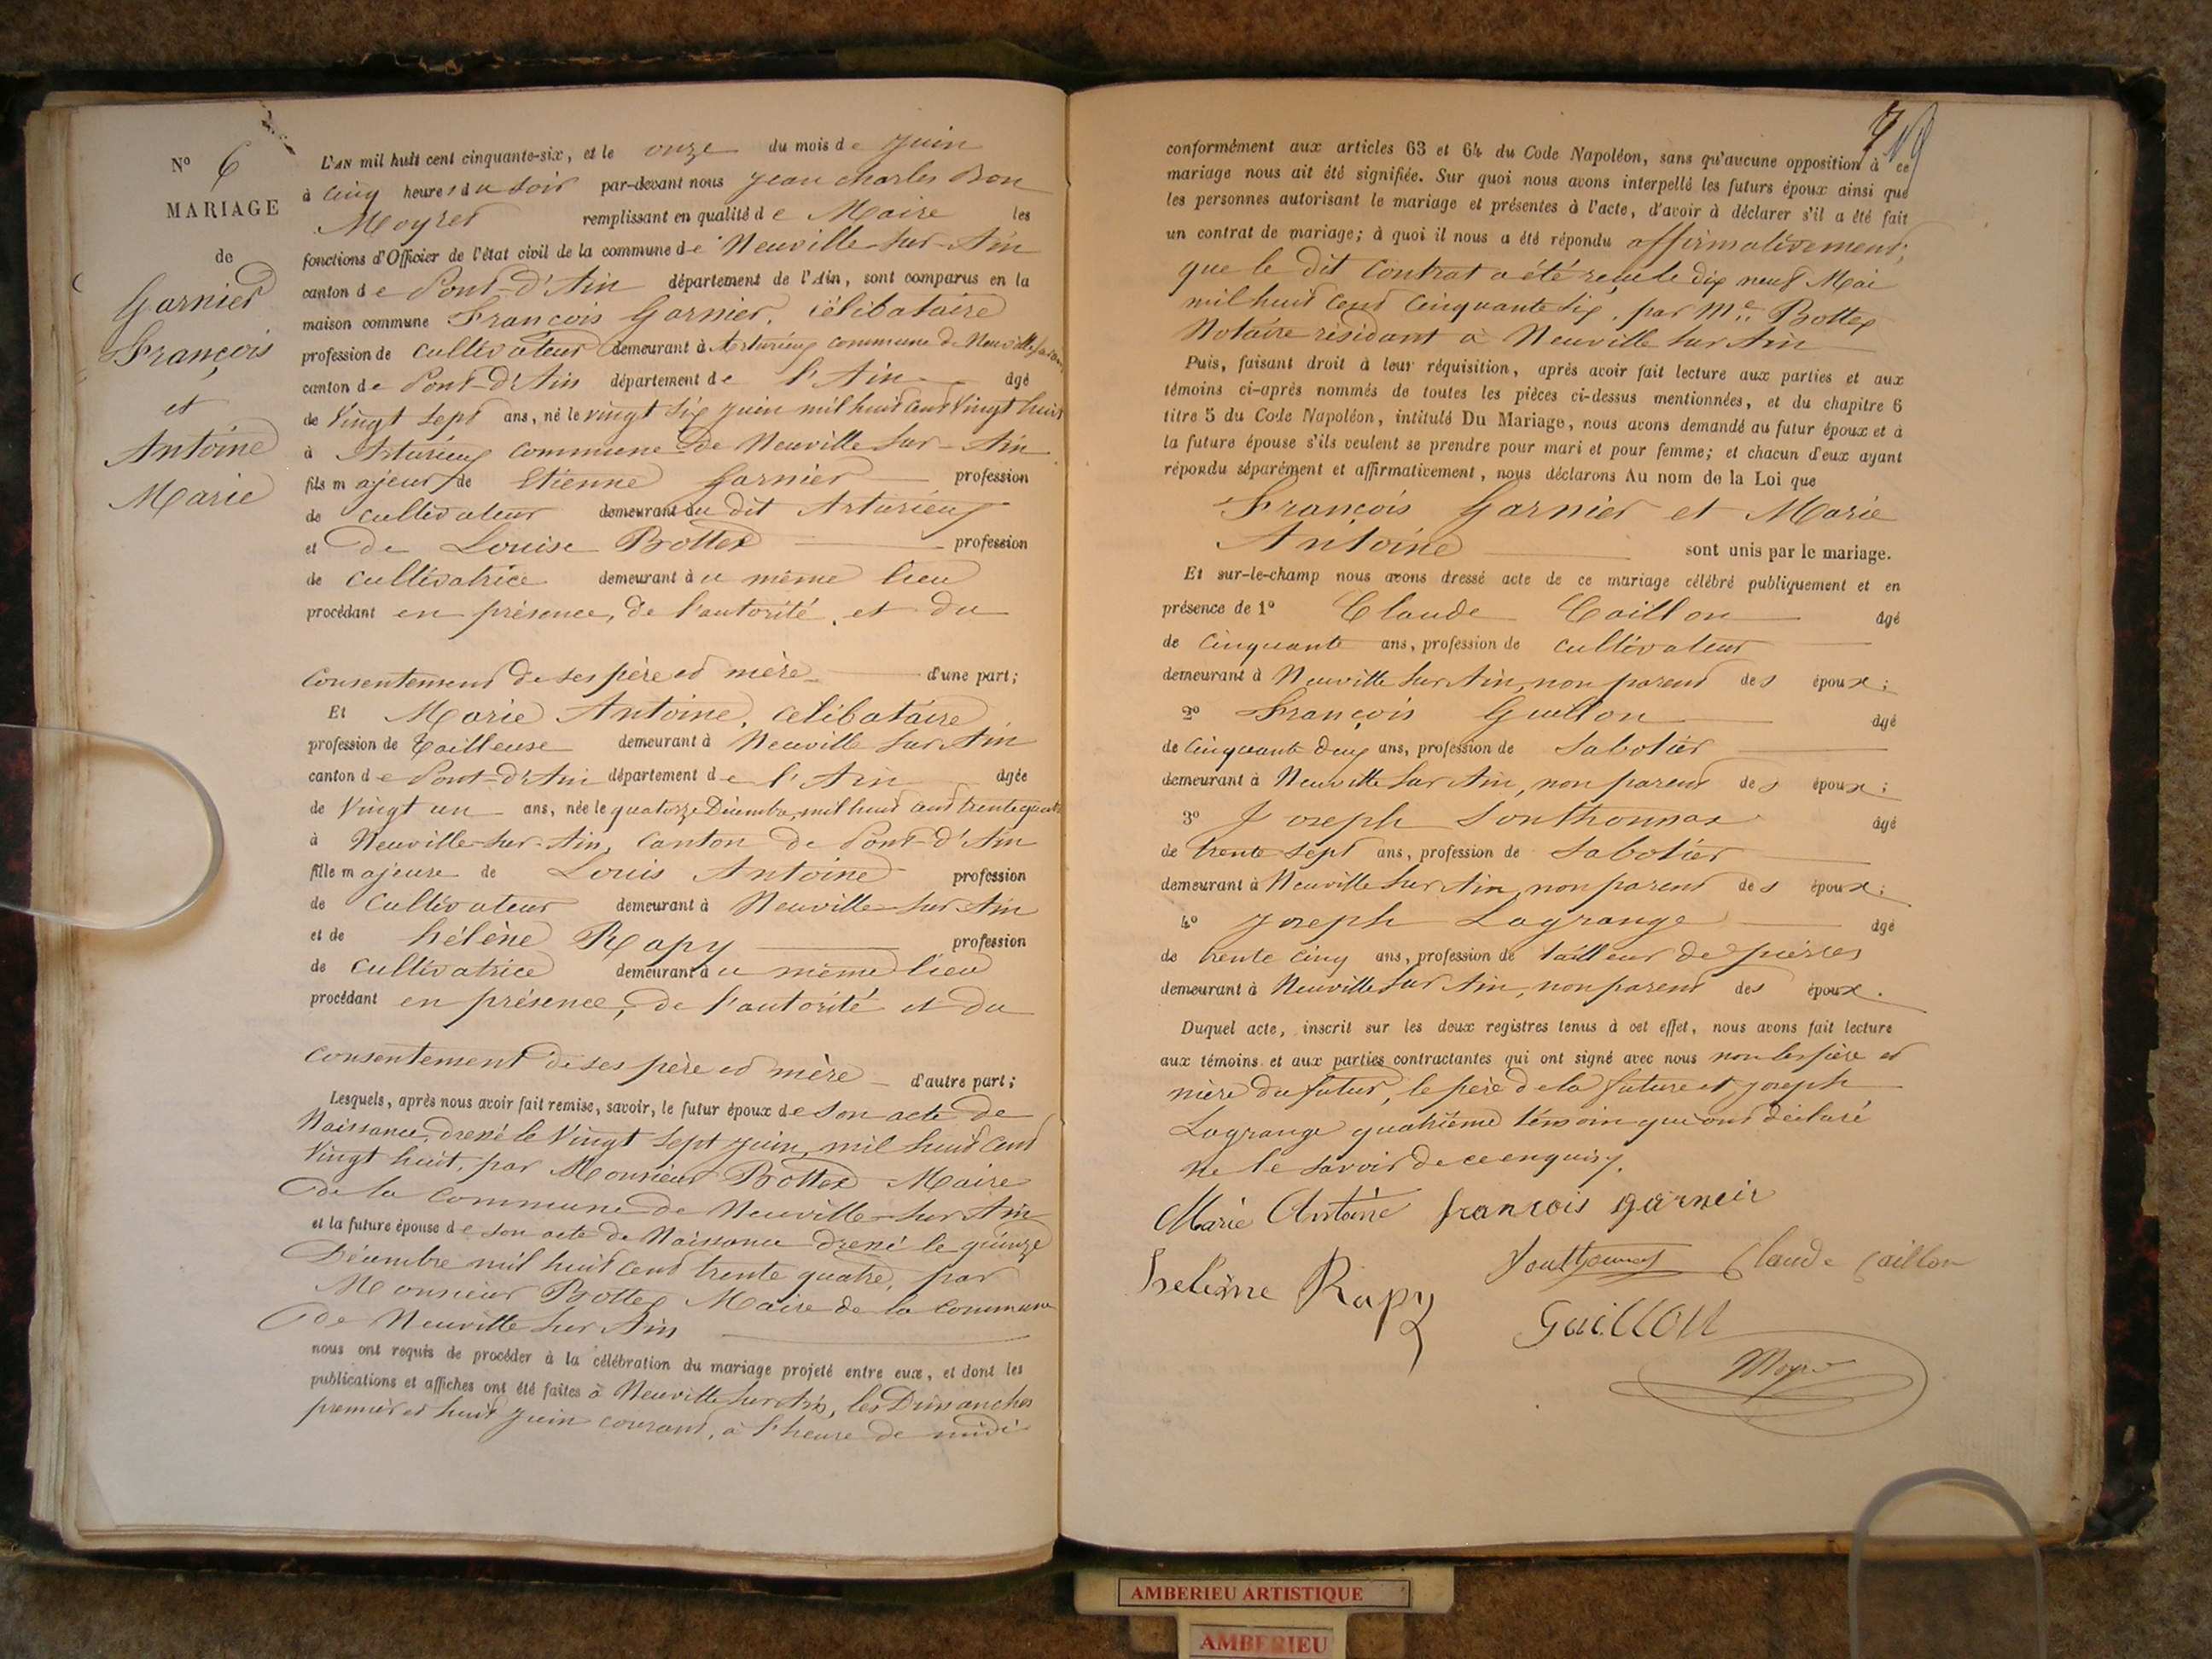 N° 6
MARIAGE
de
Garnier
François
et
Antoine
Marie
L'AN mil huit cent cinquante-six, et le onze du mois de Juin
à cinq heures du soir par-devant nous Jean Charles Bon
Moyret remplissant en qualité de Maire les
fonctions d'Officier de l'état civil de la commune de Neuville-sur-Ain
canton de Pont-d'Ain département de l'Ain, sont comparus en la
maison commune François Garnier, célibataire
profession de cultivateur demeurant à Arturieux commune de Neuville sur Ain
canton de Pont-d'Ain département de l'Ain âgé
de Vingt sept ans, né le vingt six juin mil huit cent Vingt huit
à Arturieux commune de Neuville sur-Ain
fils majeur de Etienne Garnier profession
de cultivateur demeurant au dit Arturieux
et de Louise Bottex profession
de cultivatrice demeurant au même lieu
procédant en présence, de l'autorité, et du
consentement de ses père et mère d'une part;
Et Marie Antoine, célibataire
profession de tailleuse demeurant à Neuville sur Ain
canton de Pont-d'Ain département de l'Ain âgée
de Vingt un ans, née le quatorze Décembre, mil huit cent trente quatre
à Neuville-sur-Ain, canton de Pont-d'Ain
fille majeure de Louis Antoine profession
de cultivateur demeurant à Neuville-sur Ain
et de hélène Rapy profession
de cultivatrice demeurant au même lieu
procédant en présence, de l'autorité et du
consentement de ses père et mère d'autre part;
Lesquels, après nous avoir fait remise, savoir, le futur époux de son acte de
Naissance, dressé le Vingt sept juin, mil huit cent
Vingt huit, par Monsieur Bottex Maire
de la commune de Neuville-sur Ain
et la future épouse de son acte de Naissance dressé le quinze
Décembre mil huit cent trente quatre, par
Monsieur Bottex Maire de la commune
de Neuville sur Ain
nous ont requis de procéder à la célébration du mariage projeté entre eux, et dont les
publications et affiches ont été faites à Neuville sur Ain, les Dimanches
premier et huit juin courant, à l'heure de midi
79
conformément aux articles 63 et 64 du Code Napoléon, sans qu'aucune opposition à ce
mariage nous ait été signifiée. Sur quoi nous avons interpellé les futurs époux ainsi que
les personnes autorisant le mariage et présentes à l'acte, d'avoir à déclarer s'il a été fait
un contrat de mariage; à quoi il nous a été répondu affirmativement;
que le dit contrat a été reçu le dix neuf Mai
mil huit cent cinquante six, par Me Bottex
Notaire résidant à Neuville sur Ain
Puis, faisant droit à leur réquisition, après avoir fait lecture aux parties et aux
témoins ci-après nommés de toutes les pièces ci-dessus mentionnées, et du chapitre 6
titre 5 du Code Napoléon, intitulé Du Mariage, nous avons demandé au futur époux et à
la future épouse s'ils veulent se prendre pour mari et pour femme; et chacun d'eux ayant
répondu séparément et affirmativement, nous déclarons Au nom de la Loi que
François Garnier et Marie
Antoine sont unis par le mariage.
Et sur-le-champ nous avons dressé acte de ce mariage célébré publiquement et en
présence de 1° Claude Caillon âgé
de cinquante ans, profession de cultivateur
demeurant à Neuville sur Ain, non parent des époux;
2° François Guillon âgé
de cinquante deux ans, profession de Sabotier
demeurant à Neuville sur Ain, non parent des époux;
3° Joseph Sonthonnax âgé
de trente sept ans, profession de Sabotier
demeurant à Neuville sur Ain, non parent des époux;
4° Joseph Lagrange âgé
de trente cinq ans, profession de tailleur de pierres
demeurant à Neuville sur Ain, non parent des époux.
Duquel acte, inscrit sur les deux registres tenus à cet effet, nous avons fait lecture
aux témoins et aux parties contractantes qui ont signé avec nous non les père et
mère du futur, le père de la future et Joseph
Lagrange quatrième témoin qui ont déclaré
ne le savoir de ce enquis.
Marie Antoine françois garneir
helene Rapy Sonthonnax Claude Caillon
Guillon
Moyret
AMBERIEU ARTISTIQUE
AMBERIEU